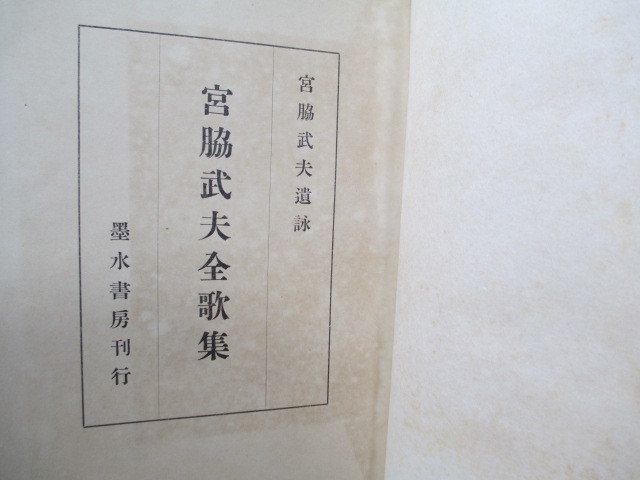 宮脇武夫遺詠
宮脇武夫全歌集
墨水書房刊行